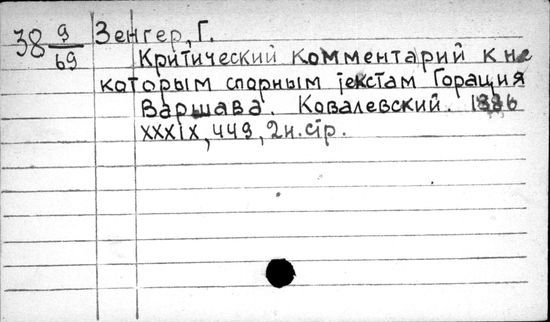 38 9/69 Зенгер, Г.
Критический комментарий к не
которым спорным текстам Горация
Варшава. Ковалевский. 1886
XXXIX, 449, 2 н. стр.